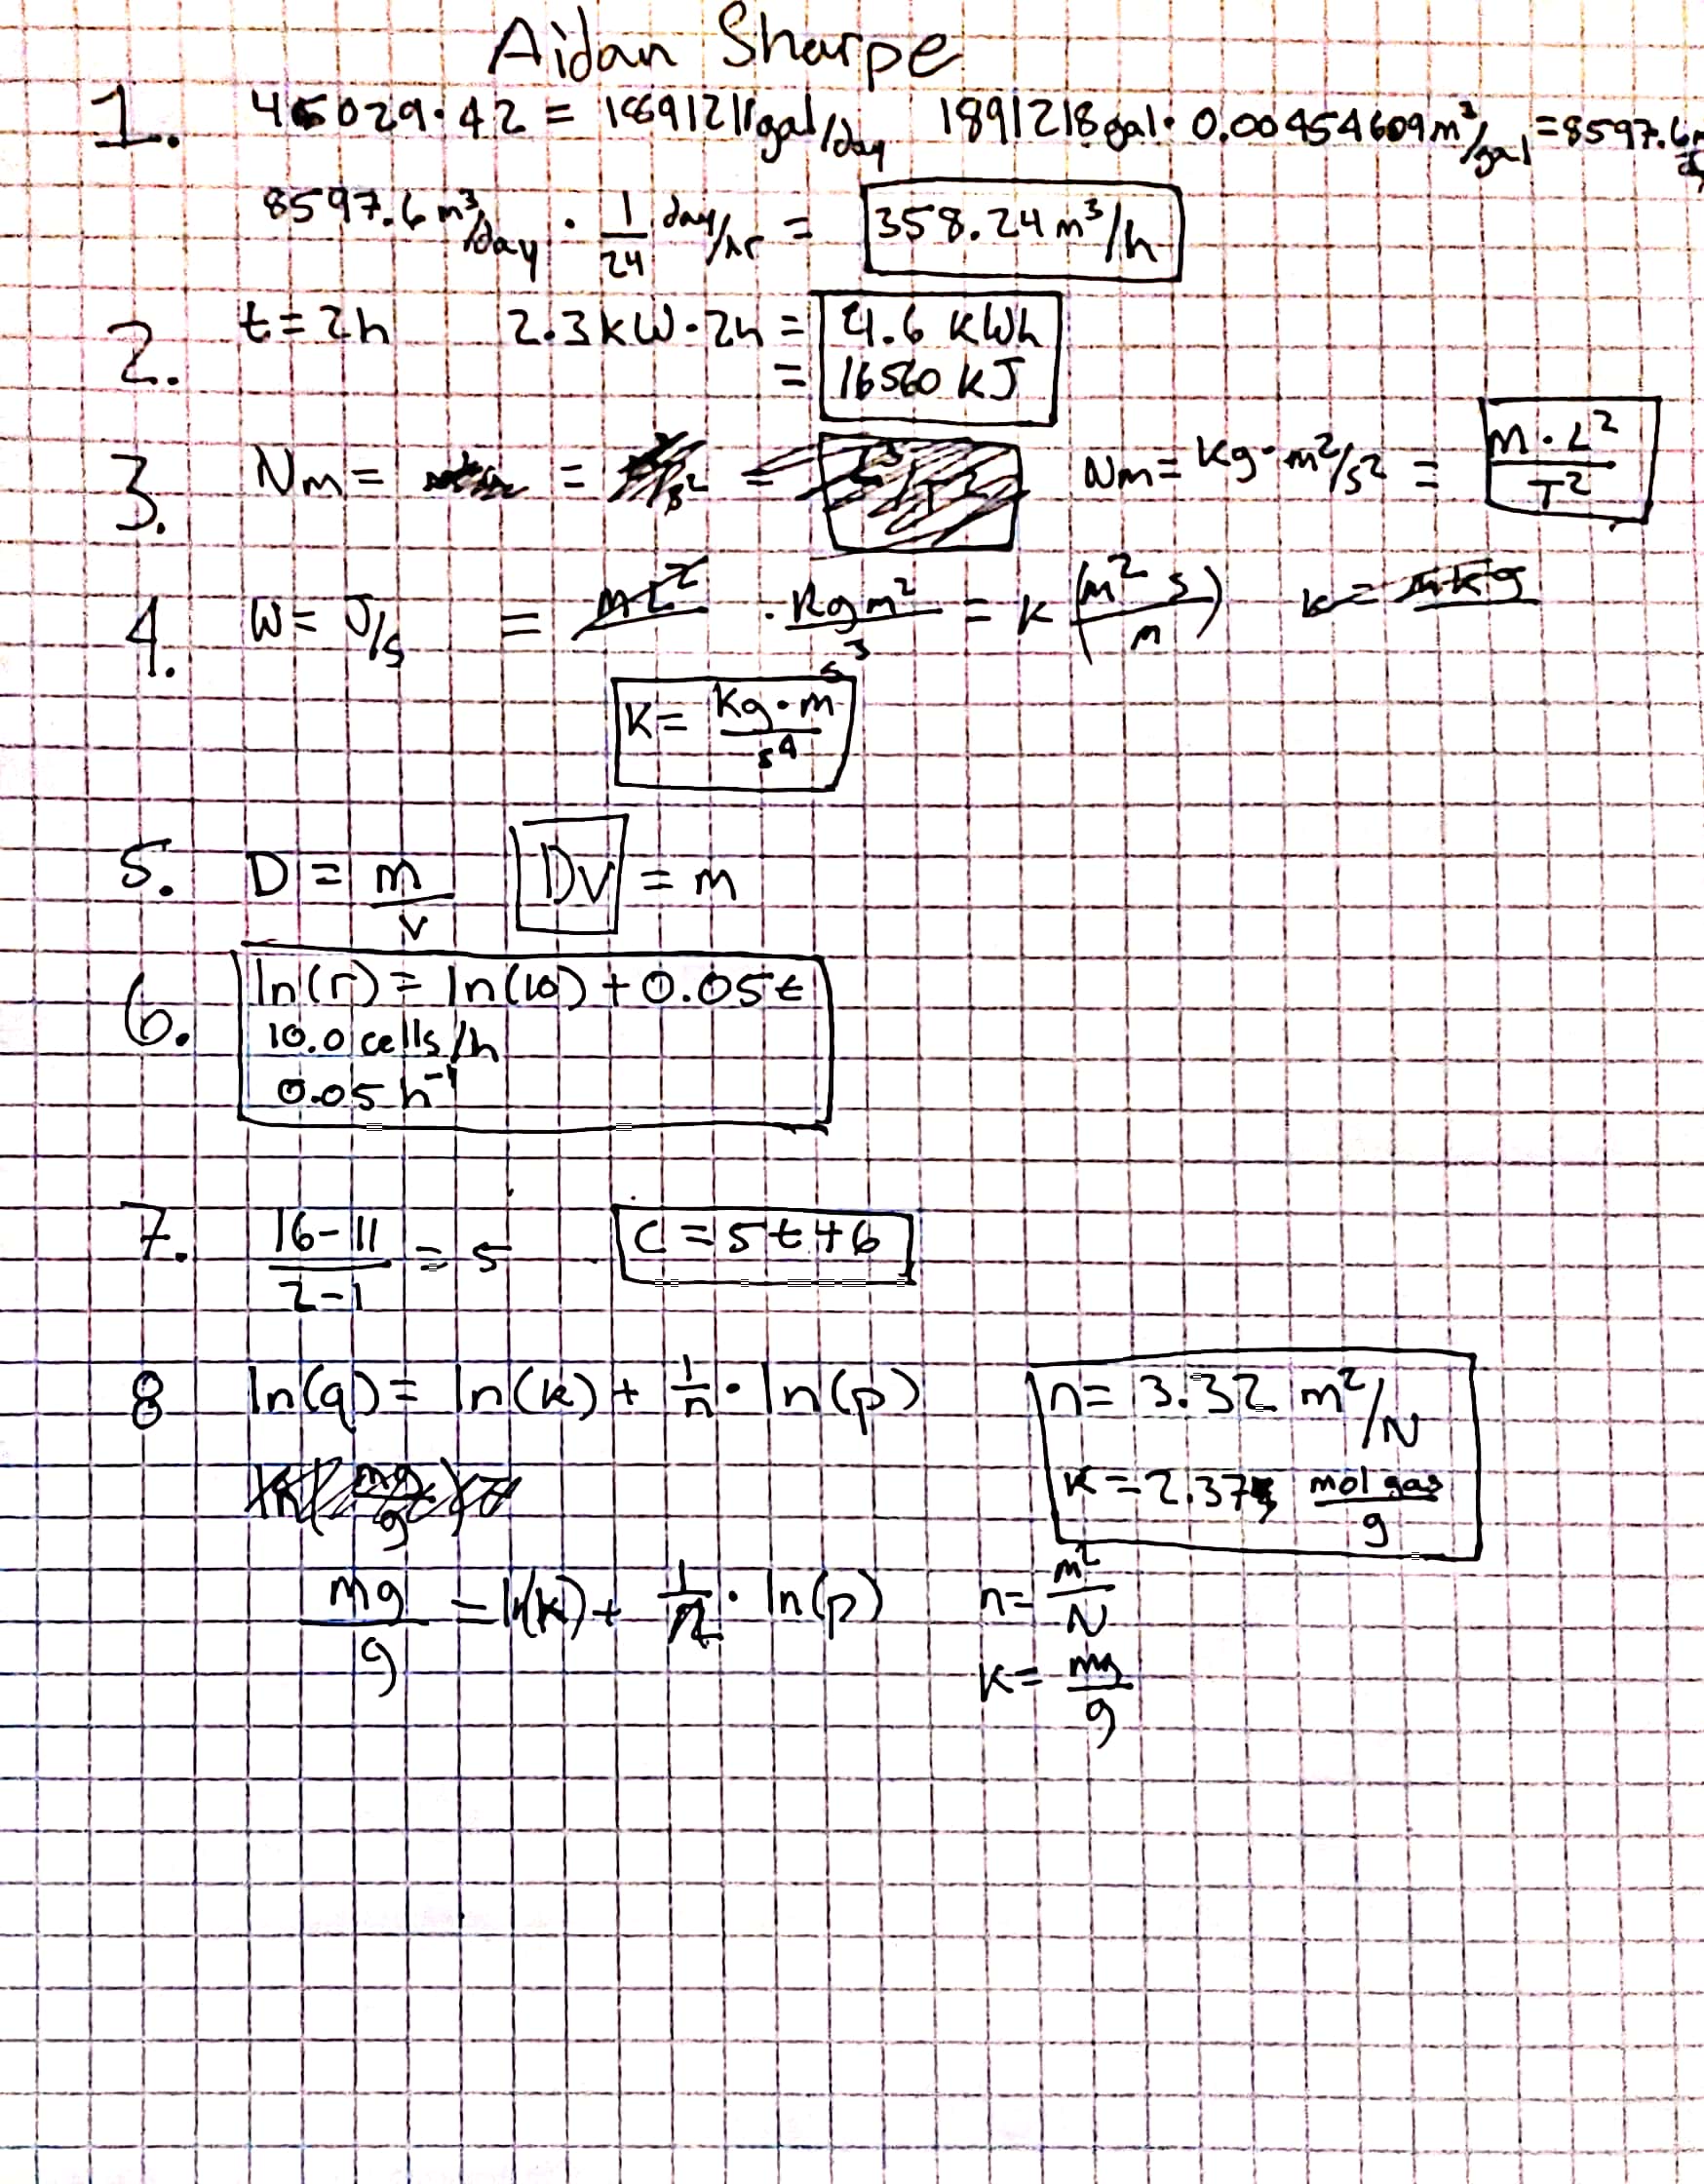 Aidan Sharpe
1. 45029·42 = 1891218gal/day 1891218gal· 0.00454609m³/gal =8597.6m
8597.6 m³/day · 1/24 day/hr = 358.24 m³/h
2. t=2h 2.3kW·2h = 4.6 kWh
= 16560 kJ
3. Nm = = = Nm= kg·m²/s² = M·L²/T²
4. W= J/s = mL² · kgm²/s³ = k (m² s/m) k= mkg
k= kg·m/s⁴
5. D = m/v Dv = m
6. ln(r) = ln(10) + 0.05t
10.0 cells/h
0.05 h⁻¹
7. 16-11/2-1 = 5 c = 5t+6
8 ln(q) = ln(k) + 1/n · ln(p) n= 3.32 m²/N
k = 2.37 mol gas/g
mg/g = ln(k) + 1/n · ln(p) n= m²/N
k= mg/g